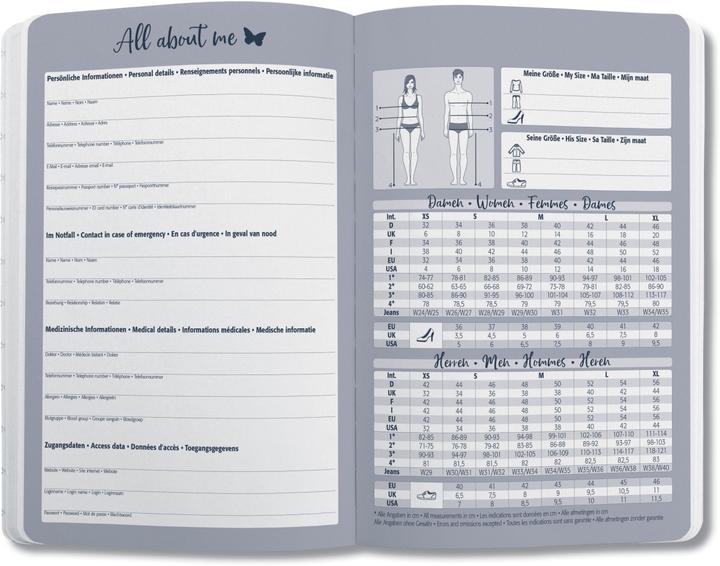 All about me
Persönliche Informationen • Personal details • Renseignements personnels • Persoonlijke informatie
Name • Name • Nom • Naam
Adresse • Address • Adresse • Adres
Telefonnummer • Telephone number • Téléphone • Telefoonnummer
E-Mail • E-mail • Adresse email • E-mail
Reisepassnummer • Passport number • N° passeport • Paspoortnummer
Personalausweisnummer • ID card number • N° carte d'identité • Identiteitskaartnummer
Im Notfall • Contact in case of emergency • En cas d'urgence • In geval van nood
Name • Name • Nom • Naam
Telefonnummer • Telephone number • Téléphone • Telefoonnummer
Beziehung • Relationship • Relation • Relatie
Medizinische Informationen • Medical details • Informations médicales • Medische informatie
Doktor • Doctor • Médecin traitant • Dokter
Telefonnummer • Telephone number • Téléphone • Telefoonnummer
Allergien • Allergies • Allergies • Allergieën
Blutgruppe • Blood group • Groupe sanguin • Bloedgroep
Zugangsdaten • Access data • Données d'accès • Toegangsgegevens
Website • Website • Site internet • Website
Loginname • Login name • Login • Loginnaam
Passwort • Password • Mot de passe • Wachtwoord
1
2
3
4
1
2
3
4
Meine Größe • My Size • Ma Taille • Mijn maat
Seine Größe • His Size • Sa Taille • Zijn maat
Damen • Women • Femmes • Dames
Int. XS S M L XL
D 32 34 36 38 40 42 44 46
UK 6 8 10 12 14 16 18 20
F 34 36 38 40 42 44 46 48
I 38 40 42 44 46 48 50 52
EU 32 34 36 38 40 42 44 46
USA 4 6 8 10 12 14 16 18
1* 74-77 78-81 82-85 86-89 90-93 94-97 98-101 102-105
2* 60-62 63-65 66-68 69-72 73-78 79-81 82-85 86-90
3* 80-85 86-90 91-95 96-100 101-104 105-107 108-112 113-117
4* 78 78,5 79 79,5 79 79 79,5 80
Jeans W24/W25 W26/W27 W28/W29 W29/W30 W31 W32 W33 W34/W35
EU 36 37 38 39 40 41 42
UK 3,5 4,5 5 6 6,5 7,5 8
USA 5 6 6,5 7,5 8 9 9,5
Herren • Men • Hommes • Heren
Int. XS S M L XL
D 42 44 46 48 50 52 54 56
UK 32 34 36 38 38 40 42 44
F 42 44 46 48 50 52 54 56
I 42 44 46 48 50 52 54 56
EU 42 44 46 48 50 52 54 56
USA 32 34 36 38 38 40 42 44
1* 82-85 86-89 90-93 94-98 99-101 102-106 107-110 111-114
2* 71-75 76-78 79-82 83-85 86-88 89-92 93-97 98-103
3* 90-93 94-97 98-101 102-105 106-109 110-113 114-117 118-121
4* 81 81,5 81,5 82 82 82,5 82,5 83
Jeans W29 W30/W31 W31/W32 W33/W34 W34/W35 W35/W36 W36/W38 W38/W40
EU 40 41 42 43 44 45 46
UK 6,5 7,5 8 9 9,5 10,5 11
USA 7 8 8,5 9,5 10 11 11,5
* Alle Angaben in cm • All measurements in cm • Les indications sont données en cm • Alle afmetingen in cm
Alle Angaben ohne Gewähr • Errors and omissions excepted • Toutes les indications sont sans garantie • Alle afmetingen zonder garantie